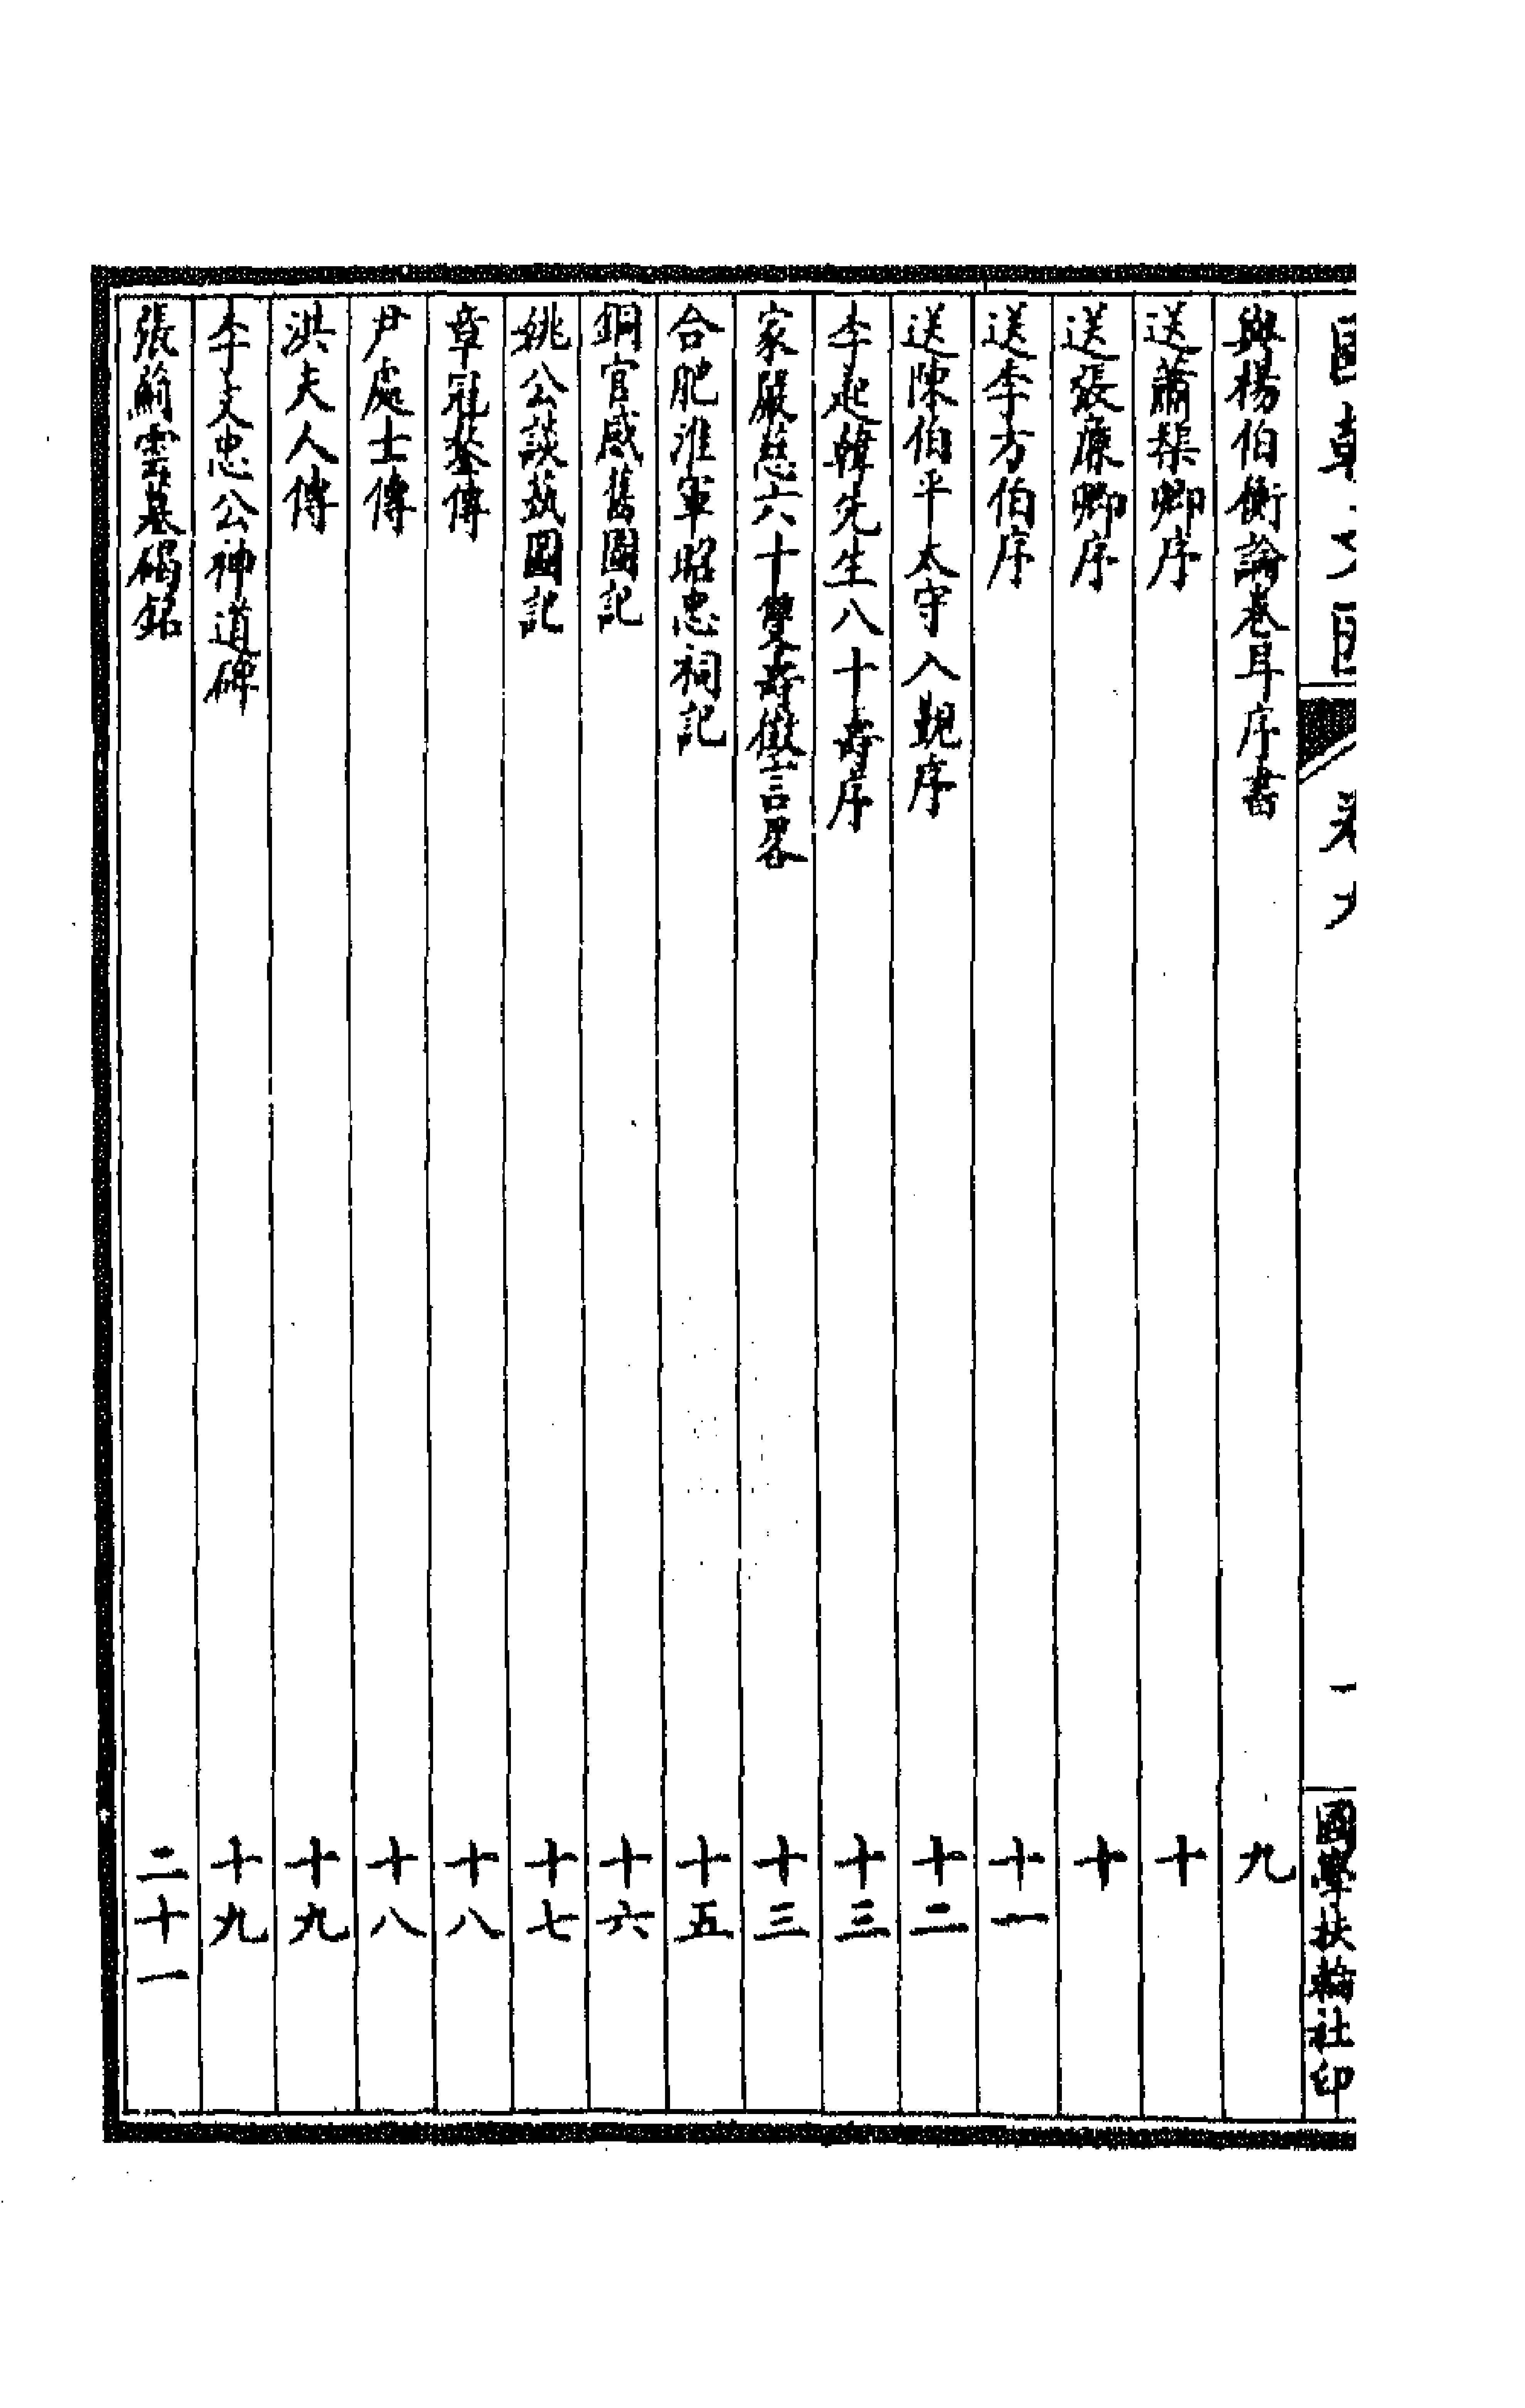 國朝文匯 卷九 一 國學扶輪社印
與楊伯衡論卷耳序書 九
送蕭榘卿序 十
送張廉卿序 十
送李方伯序 十一
送陳伯平太守入覲序 十二
李起韓先生八十壽序 十三
家嚴慈六十雙壽徵言畧 十三
合肥淮軍昭忠祠記 十五
銅官感舊圖記 十六
姚公談蓺圖記 十七
章冠鼇傳 十八
尹處士傳 十八
洪夫人傳 十九
李文忠公神道碑 十九
張靕雲墓碣銘 二十一